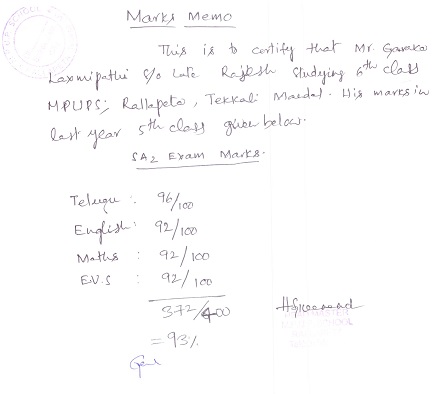 Marks Memo
This is to certify that Mr. Gavara
Laxmipathi S/o Late Rajesh Studying 6th class
MPUPS; Rallapeta, Tekkali Mandal. His marks in
last year 5th class given below.
SA2 Exam Marks.
Telugu : 96/100
English : 92/100
Maths : 92/100
E.V.S : 92/100
372/400
= 93%